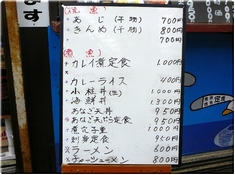 ます
あじ(干物) 700円
きんめ(干物) 800円
700円
カレイ煮定食 1,000円
カレーライス 400円
小柱丼 1,000円
海鮮丼 1,300円
あなご天丼 950円
あなご天ぷら定食 950円
煮穴子重 1,000円
刺身定食 950円
ラーメン 600円
チャーシューメン 800円